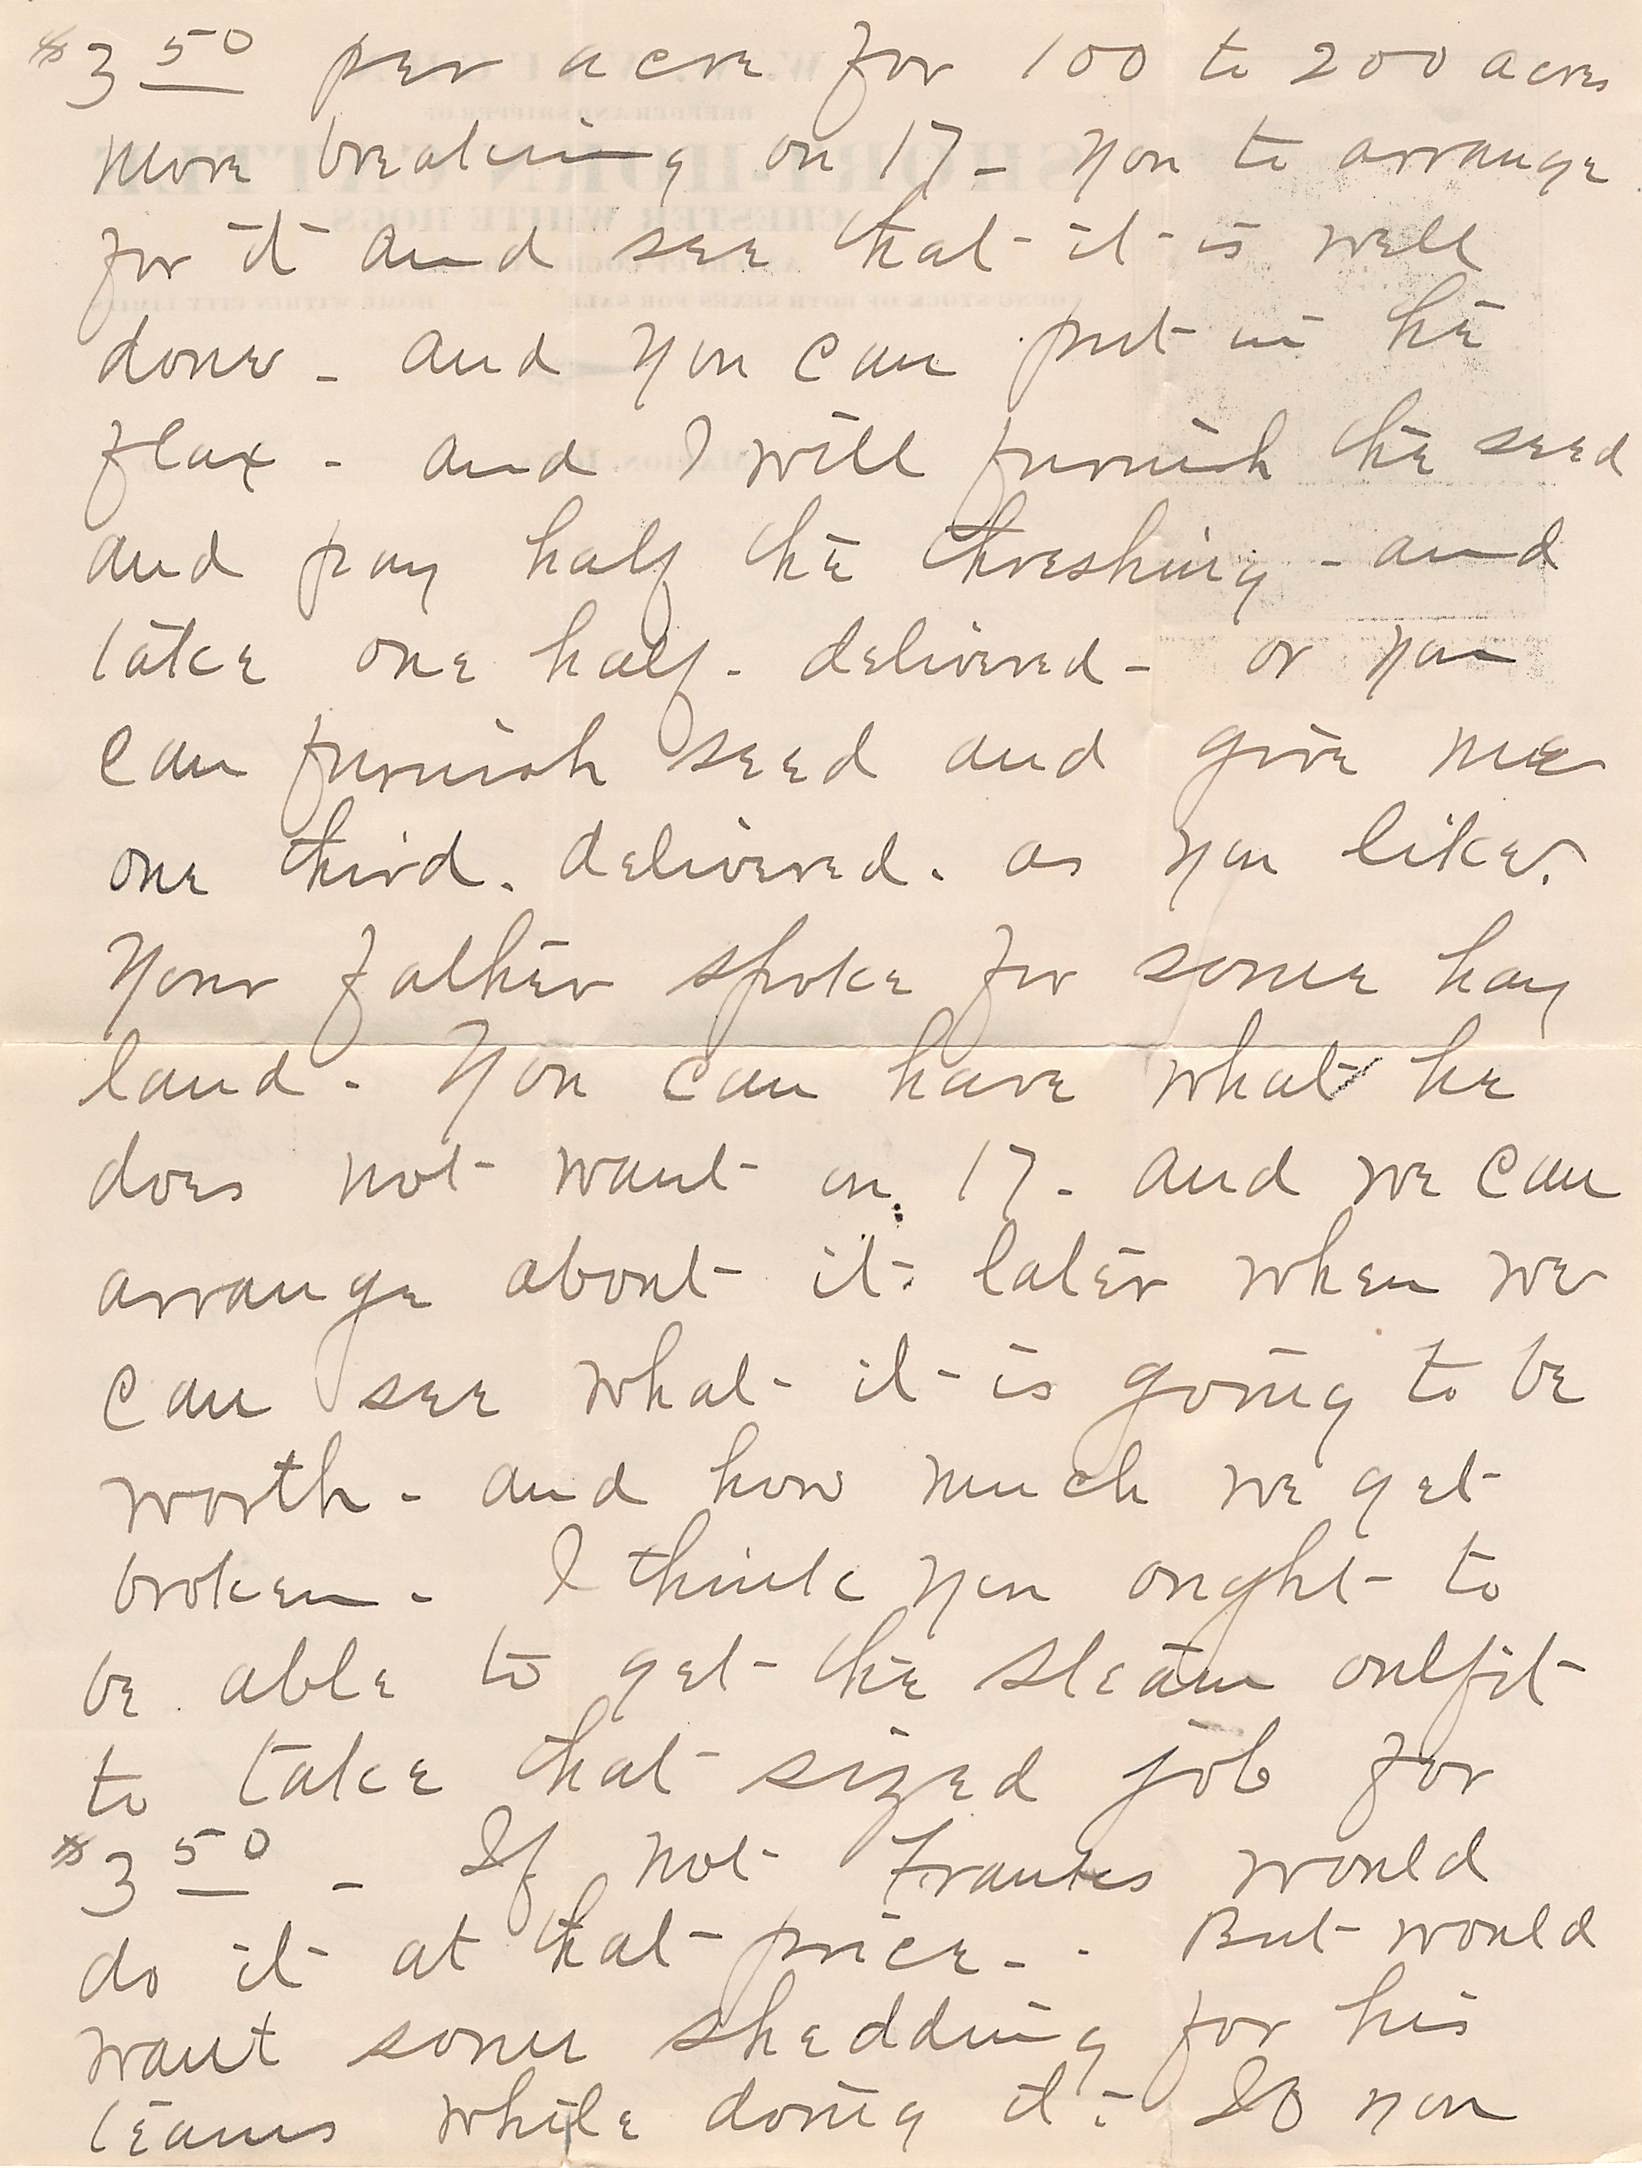 $3 50 per acre for 100 to 200 acres
more breaking on 17 - you to arrange
for it and see that it is well
done - and you can put in the
flax - and I will furnish the seed
and pay half the threshing - and
take one half - delivered - or you
can furnish seed and give me
one third. delivered. as you like.
Your father spoke for some hay
land - You can have what he
does not want on 17 - and we can
arrange about it later when we
can see what it is going to be
worth - and how much we get
broken - I think you ought to
be able to get the steam outfit
to take that sized job for
$3 50 - If not Frantes would
do it at that price - . But would
want some shedding for his
teams while doing it. If you